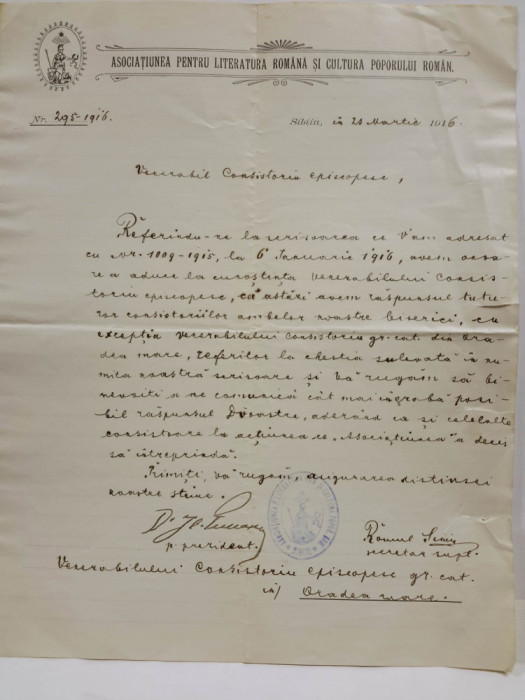 ASOCIAȚIUNEA PENTRU LITERATURA ROMÂNĂ ȘI CULTURA POPORULUI ROMÂN.
Nr. 295-1916.
Sibiiu, în 20 Martie 1916.
Venerabil Consistoriu episcopesc,
Referindu-ne la scrisoarea ce V'am adresat
cu nr. 1009-1915, la 6 Ianuarie 1916, avem onoa-
re a aduce la cunoștința Venerabilului Consis-
toriu episcopesc, că astări avem răspunsul tutu-
ror consistoriilor ambelor noastre biserici, cu
excepția Venerabilului Consistoriu gr. cat. din Ora-
dea mare, referitor la chestia sulevată în nu-
mita noastră scrisoare și Vă rugăm să bi-
nevoiți a ne comunică cât mai în grabă posi-
bil răspunsul Dvoastre, aderând ca și celelalte
consistoare la acțiunea ce „Asociațiunea" a decis
să întreprindă.
Primiți, vă rugăm, asigurarea distinsei
noastre stime.
Dr.
p. president.
Romul Simu
secretar supl.
Venerabilului Consistoriu episcopesc gr. cat.
în/ Oradea mare.